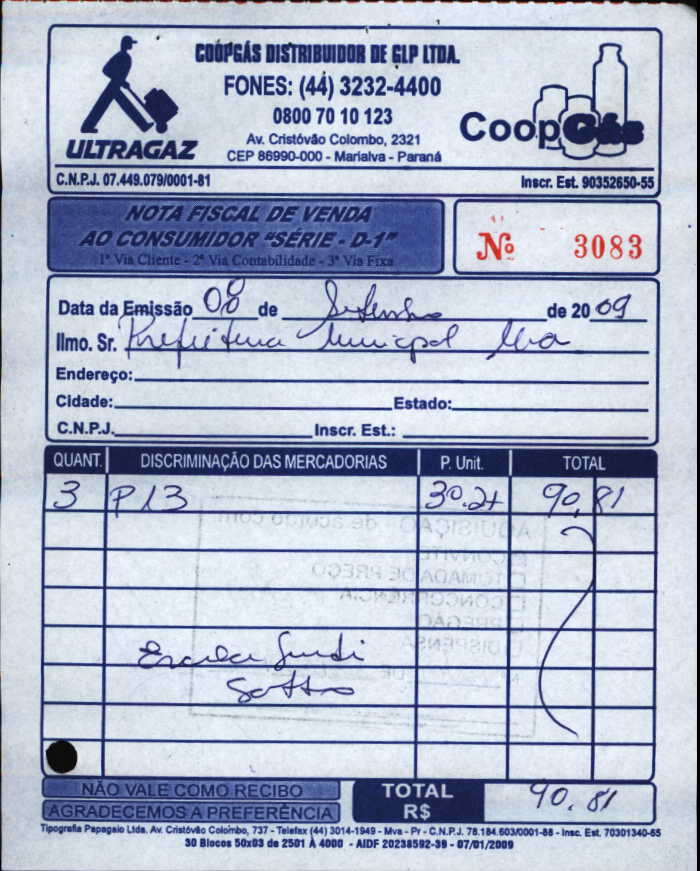 COOPGÁS DISTRIBUIDOR DE GLP LTDA.
FONES: (44) 3232-4400
0800 70 10 123
Av. Cristóvão Colombo, 2321
CEP 86990-000 - Marialva - Paraná
ULTRAGAZ
CoopGás
C.N.P.J. 07.449.079/0001-81
Inscr. Est. 90352650-55
NOTA FISCAL DE VENDA
AO CONSUMIDOR "SÉRIE - D-1"
1ª Via Cliente - 2ª Via Contabilidade - 3ª Via Fixa
Nº 3083
Data da Emissão 08 de Setembro de 2009
Ilmo. Sr. Prefeitura Municipal Mva
Endereço:
Cidade: Estado:
C.N.P.J. Inscr. Est.:
QUANT. DISCRIMINAÇÃO DAS MERCADORIAS P. Unit. TOTAL
3 P13 30.27 90,81
AQUISIÇÃO - de acordo com
CONVITE
TOMADA DE PREÇO
CONCORRÊNCIA
PREGÃO
DISPENSA
Nº DE
NÃO VALE COMO RECIBO
AGRADECEMOS A PREFERÊNCIA
TOTAL R$ 90,81
Tipografia Papagaio Ltda. Av. Cristóvão Colombo, 737 - Telefax (44) 3014-1949 - Mva - Pr - C.N.P.J. 78.184.603/0001-88 - Insc. Est. 70301340-65
30 Blocos 50x03 de 2501 À 4000 - AIDF 20238592-39 - 07/01/2009